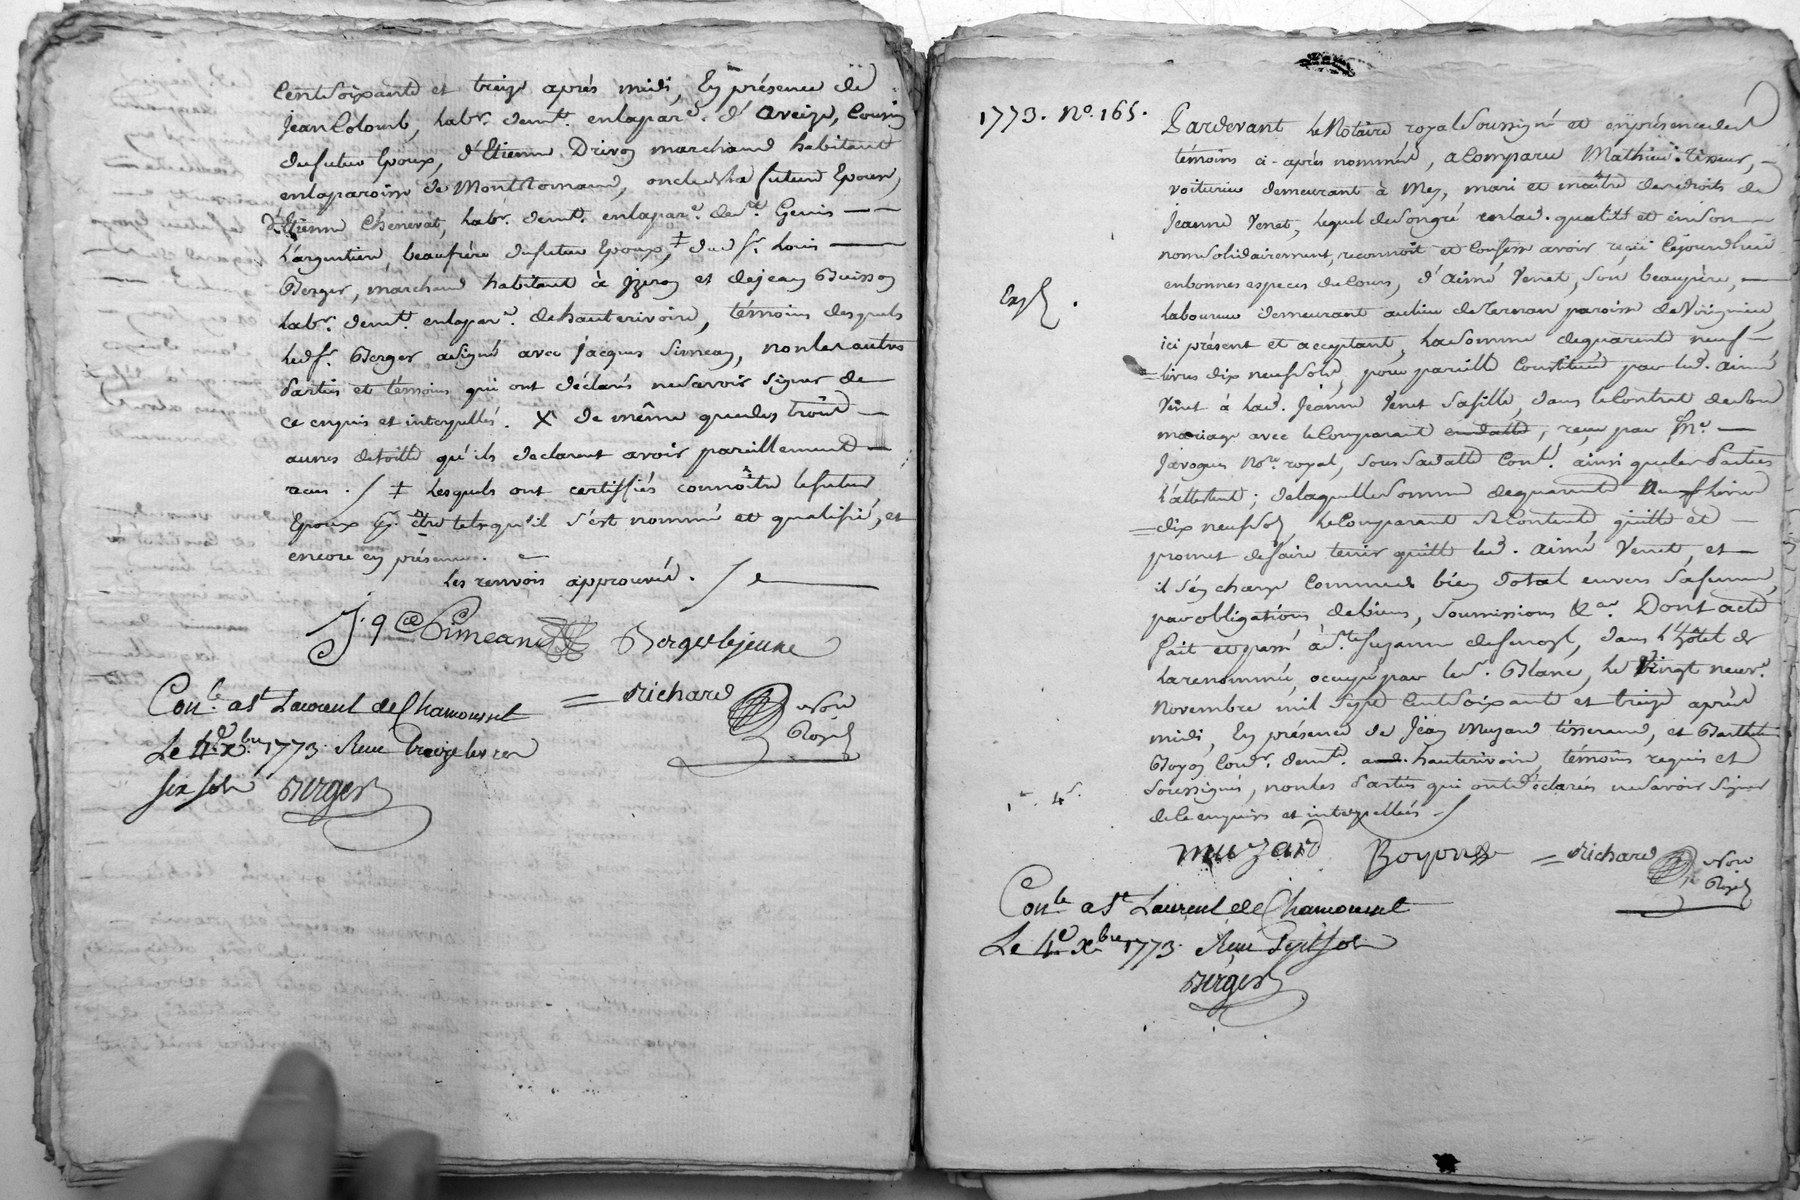 Cent soixante et treize après midi, En présence de
Jean Colomb, labr. demt. en la parse. d'Aveize, Cousin
du futur Epoux, d'Etienne Drivon marchand habitant
en la paroisse de Montromand, oncle de la future Epouse,
d'Etienne Chenevat, labr. demt. en la parse. de st. Genis
L'argentiere, beaufrère du futur Epoux, ‡ du d. sr. Louis
Berger, marchand habitant à Izeron et de jean Buisson
labr. demt. en la parse. de hauterivoire, témoins desquels
led. sr. Berger a signé avec Jacques Simean, non les autres
parties et témoins qui ont déclarés ne savoir signer de
ce enquis et interpellés. X de même que les trois
aunes de toille qu'ils declarent avoir pareillement
recus. / ‡ Lesquels ont certiffiés connoître le futur
Epoux être tels qu'il s'est nommé et qualifié, et
encore en présence.
Les renvois approuvés.
J. qe Simean Berger le jeune
= Richard
Nore
Royal
Conle. a St Laurent de Chamousset
Le 4e Xbre 1773. Reçu treize livres
six sols Berger
1773. No. 165.
Pardevant le Notaire royal soussigné et en présence des
témoins ci-après nommés, a Comparu Mathieu Tisseur,
voiturier demeurant à Mey, mari et maître des droits de
Jeanne Venet, lequel de son gré en lad. qualité et en son
nom solidairement, reconnoit et Confesse avoir reçu cejourd'hui
en bonnes especes du Cours, d'Aimé Venet, son beaupère,
laboureur demeurant au lieu de Ternan paroisse de Virigneu,
Exp.
ici présent et acceptant, la somme de quarente neuf
livres dix neuf sols, pour pareille Constituée par led. Aimé
Venet à lad. Jeanne Venet sa fille, dans le Contrat de son
mariage avec le Comparant en datte, reçu par Me.
Javogues Nore. royal, sous sa datte Conlé. ainsi que les parties
l'attestent; de laquelle somme de quarente neuf livres
dix neuf sols le Comparant se Contente quitte et
promet de faire tenir quitte led. Aimé Venet, et
il s'en charge Comme de bien dotal envers sa femme,
par obligations de biens, soumissions &ca. Dont acte
fait et passé à Ste. Suzanne, dans l'hôtel de
la renommée, occupé par le sr. Blanc, le Vingt neuf
Novembre mil sept Cent soixante et treize après
midi, En présence de Jean Muzard tisserand, et Barthle.
Boyon Cordr. demt. aud. hauterivoire, témoins requis et
soussignés, non les parties qui ont déclarées ne savoir signer
de Ce enquises et interpellées.
muzard Boyon = Richard
Nore
Royal
Conle a St Laurent de Chamousset
Le 4e Xbre 1773. Reçu sept sols
Berger